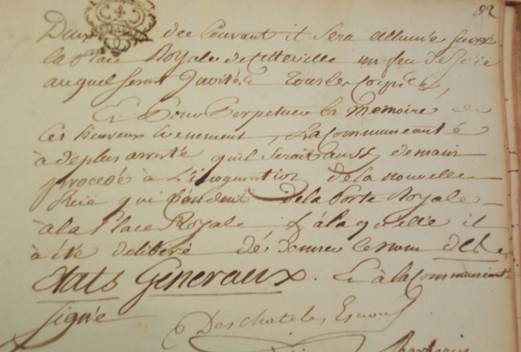 52
du courant il sera allumé sur
la place Royale de cette ville un feu de joie
auquel seront Invités tous les corps
Et Pour Perpetuer la Memoire de
cet heureux Evenement, La Communauté
a de plus arresté qu'il seroit aussy demain
procedé à L'inauguration de la nouvelle
Rüe qui de la Porte Royale
à la Place Royale à laquelle il
a été deliberé de donner le nom des
états Géneraux. Et à la Communauté
signé
Des